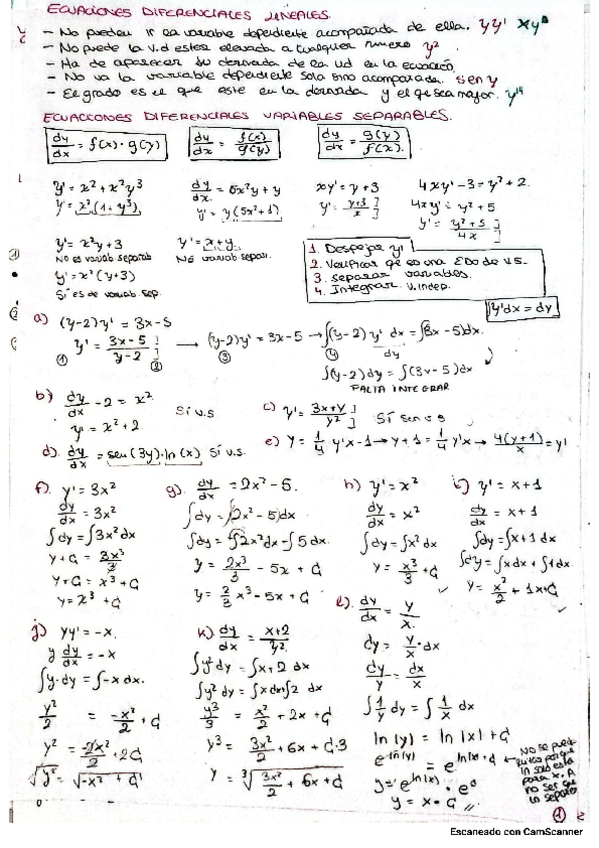 ECUACIONES DIFERENCIALES LINEALES.
- No pueden ir la variable dependiente acompañada de ella. yy' xy
- No puede la v.d estar elevada a cualquier numero y².
- Ha de aparecer la derivada de la vd en la ecuación.
- No va la variable dependiente sola sino acompañada. sen y
- El grado es el que este en la derivada y el que sea major.
ECUACIONES DIFERENCIALES VARIABLES SEPARABLES.
dy/dx = f(x)·g(y) dy/dx = f(x)/g(y) dy/dx = g(y)/f(x).
y' = x² + x²y³ dy/dx = 5x²y + y xy' = y+3 4xy' - 3 = y² + 2.
y' = x²(1+y³) y' = y(5x²+1) y' = y+3/x 4xy' = y² + 5
y' = y²+5/4x
y' = x²y + 3 y' = x+y
No es variab separab No variab separ.
y' = x²(y+3)
Sí es de variab sep.
1. Despejar y'
2. Verificar qe es una EDO de V.S.
3. Separar variables.
4. Integrar v.indep.
y'dx = dy
a) (y-2)y' = 3x-5
y' = 3x-5/y-2 → (y-2)y' = 3x-5 → ∫(y-2) y' dx = ∫(3x-5)dx.
① ② ③ ④ dy
∫(y-2)dy = ∫(3x-5)dx
FALTA INTEGRAR
b) dy/dx - 2 = x² Sí v.s c) y' = 3x+y/y² Sí
y' = x²+2
d) dy/dx = sen(3y)·ln(x) Sí v.s. e) y = 1/4 y'x - 1 → y+1 = 1/4 y'x → 4(y+1)/x = y'
f). y' = 3x² g). dy/dx = 2x² - 5. h) y' = x² i) y' = x+1
dy/dx = 3x² ∫dy = ∫(2x²-5)dx dy/dx = x² dy/dx = x+1
∫dy = ∫3x²dx ∫dy = ∫2x²dx - ∫5dx. ∫dy = ∫x²dx ∫dy = ∫x+1 dx
y+C = 3x³/3 y = 2x³/3 - 5x + C y = x³/3 + C ∫dy = ∫xdx + ∫1dx.
y+C = x³+C y = 2/3 x³ - 5x + C y = x²/2 + 1x + C
y = x³ + C
j) yy' = -x. k) dy/dx = x+2/y². l). dy/dx = y/x.
y dy/dx = -x ∫y²dy = ∫x+2 dx dy = y/x · dx
∫y·dy = ∫-x dx. ∫y²dy = ∫xdx+∫2 dx dy/y = dx/x
y²/2 = -x²/2 + C y³/3 = x²/2 + 2x + C ∫1/y dy = ∫1/x dx
y² = -2x²/2 + 2C y³ = 3x²/2 + 6x + C·3 ln|y| = ln|x| + C
√y² = √-x² + C y = ³√3x²/2 + 6x + C e^ln(y) = e^ln|x|+C
y = e^ln(x) · e^c
y = x·C
No se puede quitar porque ln solo está para x. A no ser que lo separe
①
Escaneado con CamScanner